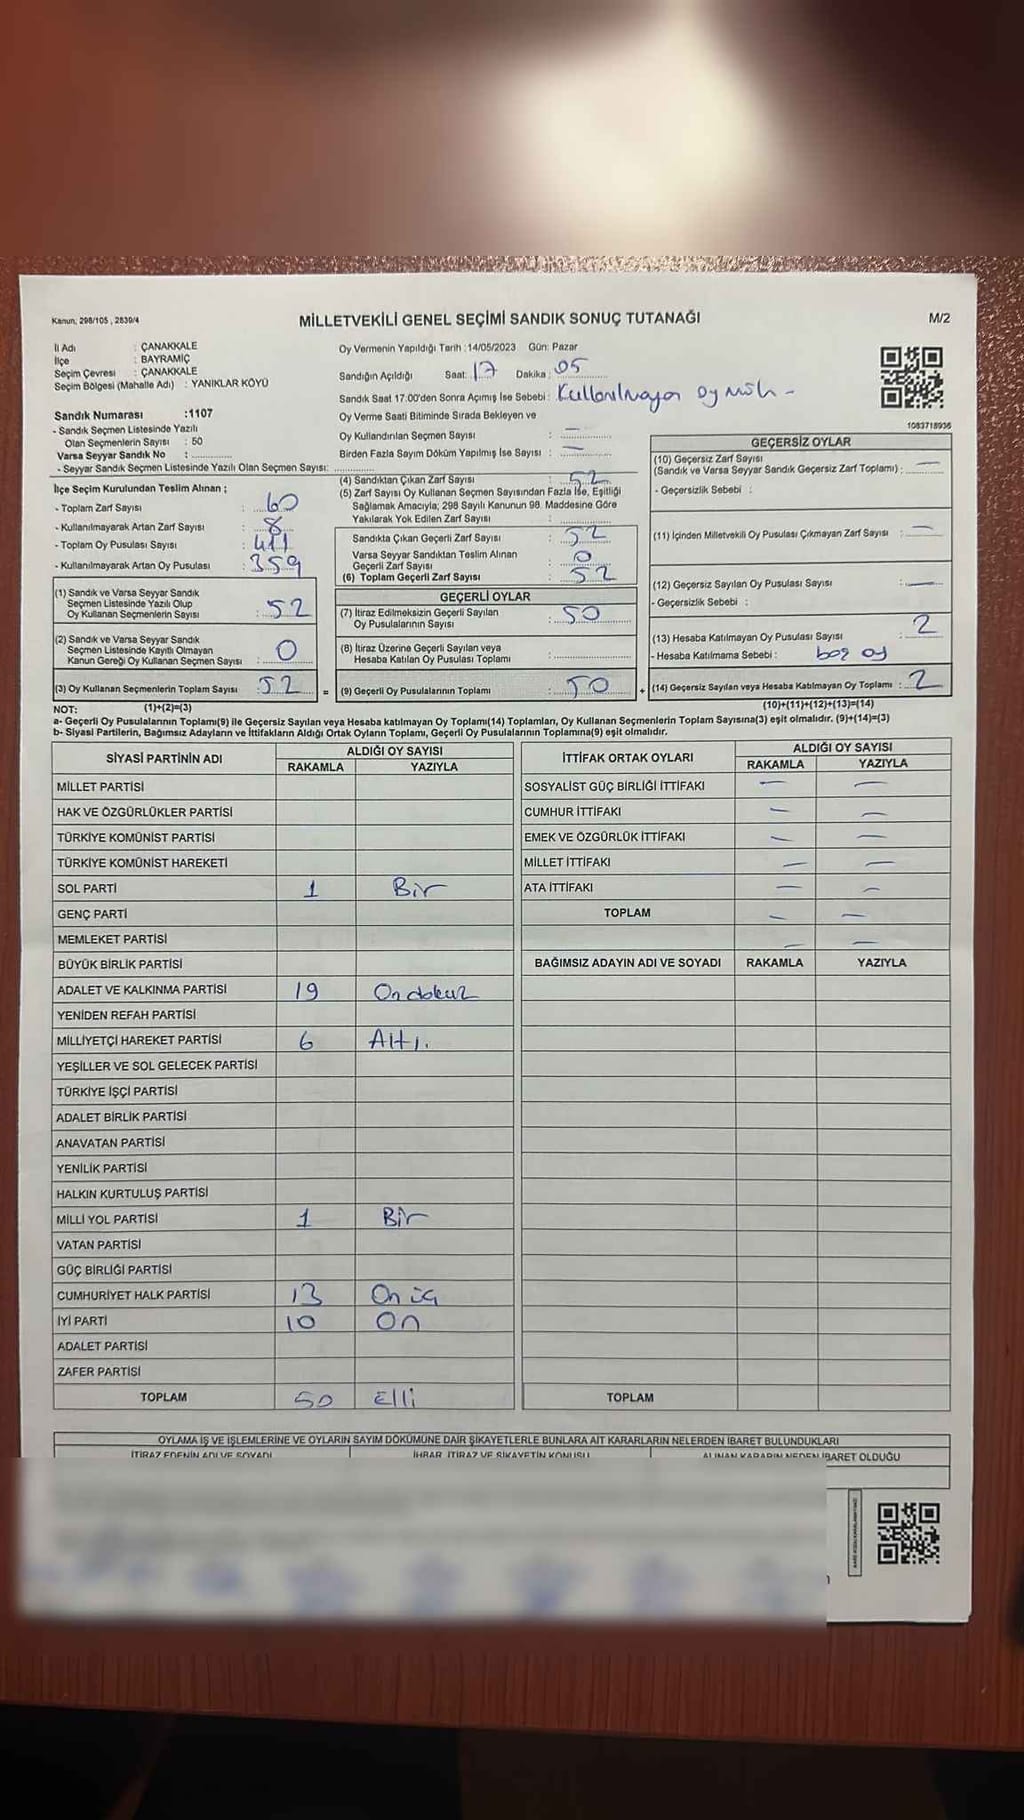 Kanun, 298/105 , 2839/4
MİLLETVEKİLİ GENEL SEÇİMİ SANDIK SONUÇ TUTANAĞI
M/2
İl Adı : ÇANAKKALE
İlçe : BAYRAMİÇ
Seçim Çevresi : ÇANAKKALE
Seçim Bölgesi (Mahalle Adı) : YANIKLAR KÖYÜ
Sandık Numarası :1107
- Sandık Seçmen Listesinde Yazılı
Olan Seçmenlerin Sayısı : 50
Varsa Seyyar Sandık No :
- Seyyar Sandık Seçmen Listesinde Yazılı Olan Seçmen Sayısı:
Oy Vermenin Yapıldığı Tarih :14/05/2023 Gün: Pazar
Sandığın Açıldığı Saat: 17 Dakika : 05
Sandık Saat 17.00'den Sonra Açımış İse Sebebi : Kullanılmayan oy müh -
Oy Verme Saati Bitiminde Sırada Bekleyen ve
Oy Kullandırılan Seçmen Sayısı : —
Birden Fazla Sayım Döküm Yapılmış İse Sayısı : —
1083718936
İlçe Seçim Kurulundan Teslim Alınan ;
- Toplam Zarf Sayısı : 60
- Kullanılmayarak Artan Zarf Sayısı : 8
- Toplam Oy Pusulası Sayısı : 411
- Kullanılmayarak Artan Oy Pusulası : 359
(1) Sandık ve Varsa Seyyar Sandık
Seçmen Listesinde Yazılı Olup
Oy Kullanan Seçmenlerin Sayısı : 52
(2) Sandık ve Varsa Seyyar Sandık
Seçmen Listesinde Kayıtlı Olmayan
Kanun Gereği Oy Kullanan Seçmen Sayısı : 0
(3) Oy Kullanan Seçmenlerin Toplam Sayısı : 52 =
(4) Sandıktan Çıkan Zarf Sayısı : 52
(5) Zarf Sayısı Oy Kullanan Seçmen Sayısından Fazla İse, Eşitliği
Sağlamak Amacıyla; 298 Sayılı Kanunun 98. Maddesine Göre
Yakılarak Yok Edilen Zarf Sayısı :
Sandıkta Çıkan Geçerli Zarf Sayısı : 52
Varsa Seyyar Sandıktan Teslim Alınan
Geçerli Zarf Sayısı : 0
(6) Toplam Geçerli Zarf Sayısı : 52
GEÇERLİ OYLAR
(7) İtiraz Edilmeksizin Geçerli Sayılan
Oy Pusulalarının Sayısı : 50
(8) İtiraz Üzerine Geçerli Sayılan veya
Hesaba Katılan Oy Pusulası Toplamı :
(9) Geçerli Oy Pusulalarının Toplamı : 50 +
GEÇERSİZ OYLAR
(10) Geçersiz Zarf Sayısı
(Sandık ve Varsa Seyyar Sandık Geçersiz Zarf Toplamı) : —
- Geçersizlik Sebebi :
(11) İçinden Milletvekili Oy Pusulası Çıkmayan Zarf Sayısı : —
(12) Geçersiz Sayılan Oy Pusulası Sayısı : —
- Geçersizlik Sebebi :
(13) Hesaba Katılmayan Oy Pusulası Sayısı : 2
- Hesaba Katılmama Sebebi : boş oy
(14) Geçersiz Sayılan veya Hesaba Katılmayan Oy Toplamı : 2
NOT: (1)+(2)=(3) (10)+(11)+(12)+(13)=(14)
a- Geçerli Oy Pusulalarının Toplamı(9) ile Geçersiz Sayılan veya Hesaba katılmayan Oy Toplamı(14) Toplamları, Oy Kullanan Seçmenlerin Toplam Sayısına(3) eşit olmalıdır. (9)+(14)=(3)
b- Siyasi Partilerin, Bağımsız Adayların ve İttifakların Aldığı Ortak Oyların Toplamı, Geçerli Oy Pusulalarının Toplamına(9) eşit olmalıdır.
SİYASİ PARTİNİN ADI ALDIĞI OY SAYISI
RAKAMLA YAZIYLA
MİLLET PARTİSİ
HAK VE ÖZGÜRLÜKLER PARTİSİ
TÜRKİYE KOMÜNİST PARTİSİ
TÜRKİYE KOMÜNİST HAREKETİ
SOL PARTİ 1 Bir
GENÇ PARTİ
MEMLEKET PARTİSİ
BÜYÜK BİRLİK PARTİSİ
ADALET VE KALKINMA PARTİSİ 19 On dokuz
YENİDEN REFAH PARTİSİ
MİLLİYETÇİ HAREKET PARTİSİ 6 Altı.
YEŞİLLER VE SOL GELECEK PARTİSİ
TÜRKİYE İŞÇİ PARTİSİ
ADALET BİRLİK PARTİSİ
ANAVATAN PARTİSİ
YENİLİK PARTİSİ
HALKIN KURTULUŞ PARTİSİ
MİLLİ YOL PARTİSİ 1 Bir
VATAN PARTİSİ
GÜÇ BİRLİĞİ PARTİSİ
CUMHURİYET HALK PARTİSİ 13 On üç
İYİ PARTİ 10 On
ADALET PARTİSİ
ZAFER PARTİSİ
TOPLAM 50 Elli
İTTİFAK ORTAK OYLARI ALDIĞI OY SAYISI
RAKAMLA YAZIYLA
SOSYALİST GÜÇ BİRLİĞİ İTTİFAKI — —
CUMHUR İTTİFAKI — —
EMEK VE ÖZGÜRLÜK İTTİFAKI — —
MİLLET İTTİFAKI — —
ATA İTTİFAKI — —
TOPLAM — —
— —
BAĞIMSIZ ADAYIN ADI VE SOYADI RAKAMLA YAZIYLA
TOPLAM
OYLAMA İŞ VE İŞLEMLERİNE VE OYLARIN SAYIM DÖKÜMÜNE DAİR ŞİKAYETLERLE BUNLARA AİT KARARLARIN NELERDEN İBARET BULUNDUKLARI
İTİRAZ EDENİN ADI VE SOYADI İHBAR, İTİRAZ VE ŞİKAYETİN KONUSU ALINAN KARARIN NEDEN İBARET OLDUĞU